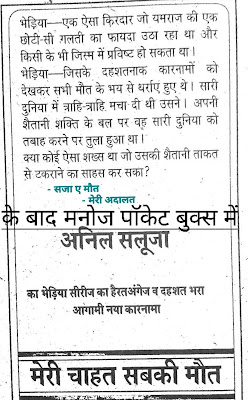 भेड़िया—एक ऐसा क़िरदार जो यमराज की एक
छोटी-सी ग़लती का फायदा उठा रहा था और
किसी के भी जिस्म में प्रविष्ट हो सकता था।
भेड़िया—जिसके दहशतनाक कारनामों को
देखकर सभी मौत के भय से थर्राए हुए थे। सारी
दुनिया में त्राहि-त्राहि मचा दी थी उसने। अपनी
शैतानी शक्ति के बल पर वह सारी दुनिया को
तबाह करने पर तुला हुआ था।
क्या कोई ऐसा शख्स था जो उसकी शैतानी ताकत
से टकराने का साहस कर सका?
- सजा ए मौत
- मेरी अदालत
के बाद मनोज पॉकेट बुक्स में
अनिल सलूजा
का भेड़िया सीरीज का हैरतअंगेज व दहशत भरा
आगामी नया कारनामा
मेरी चाहत सबकी मौत